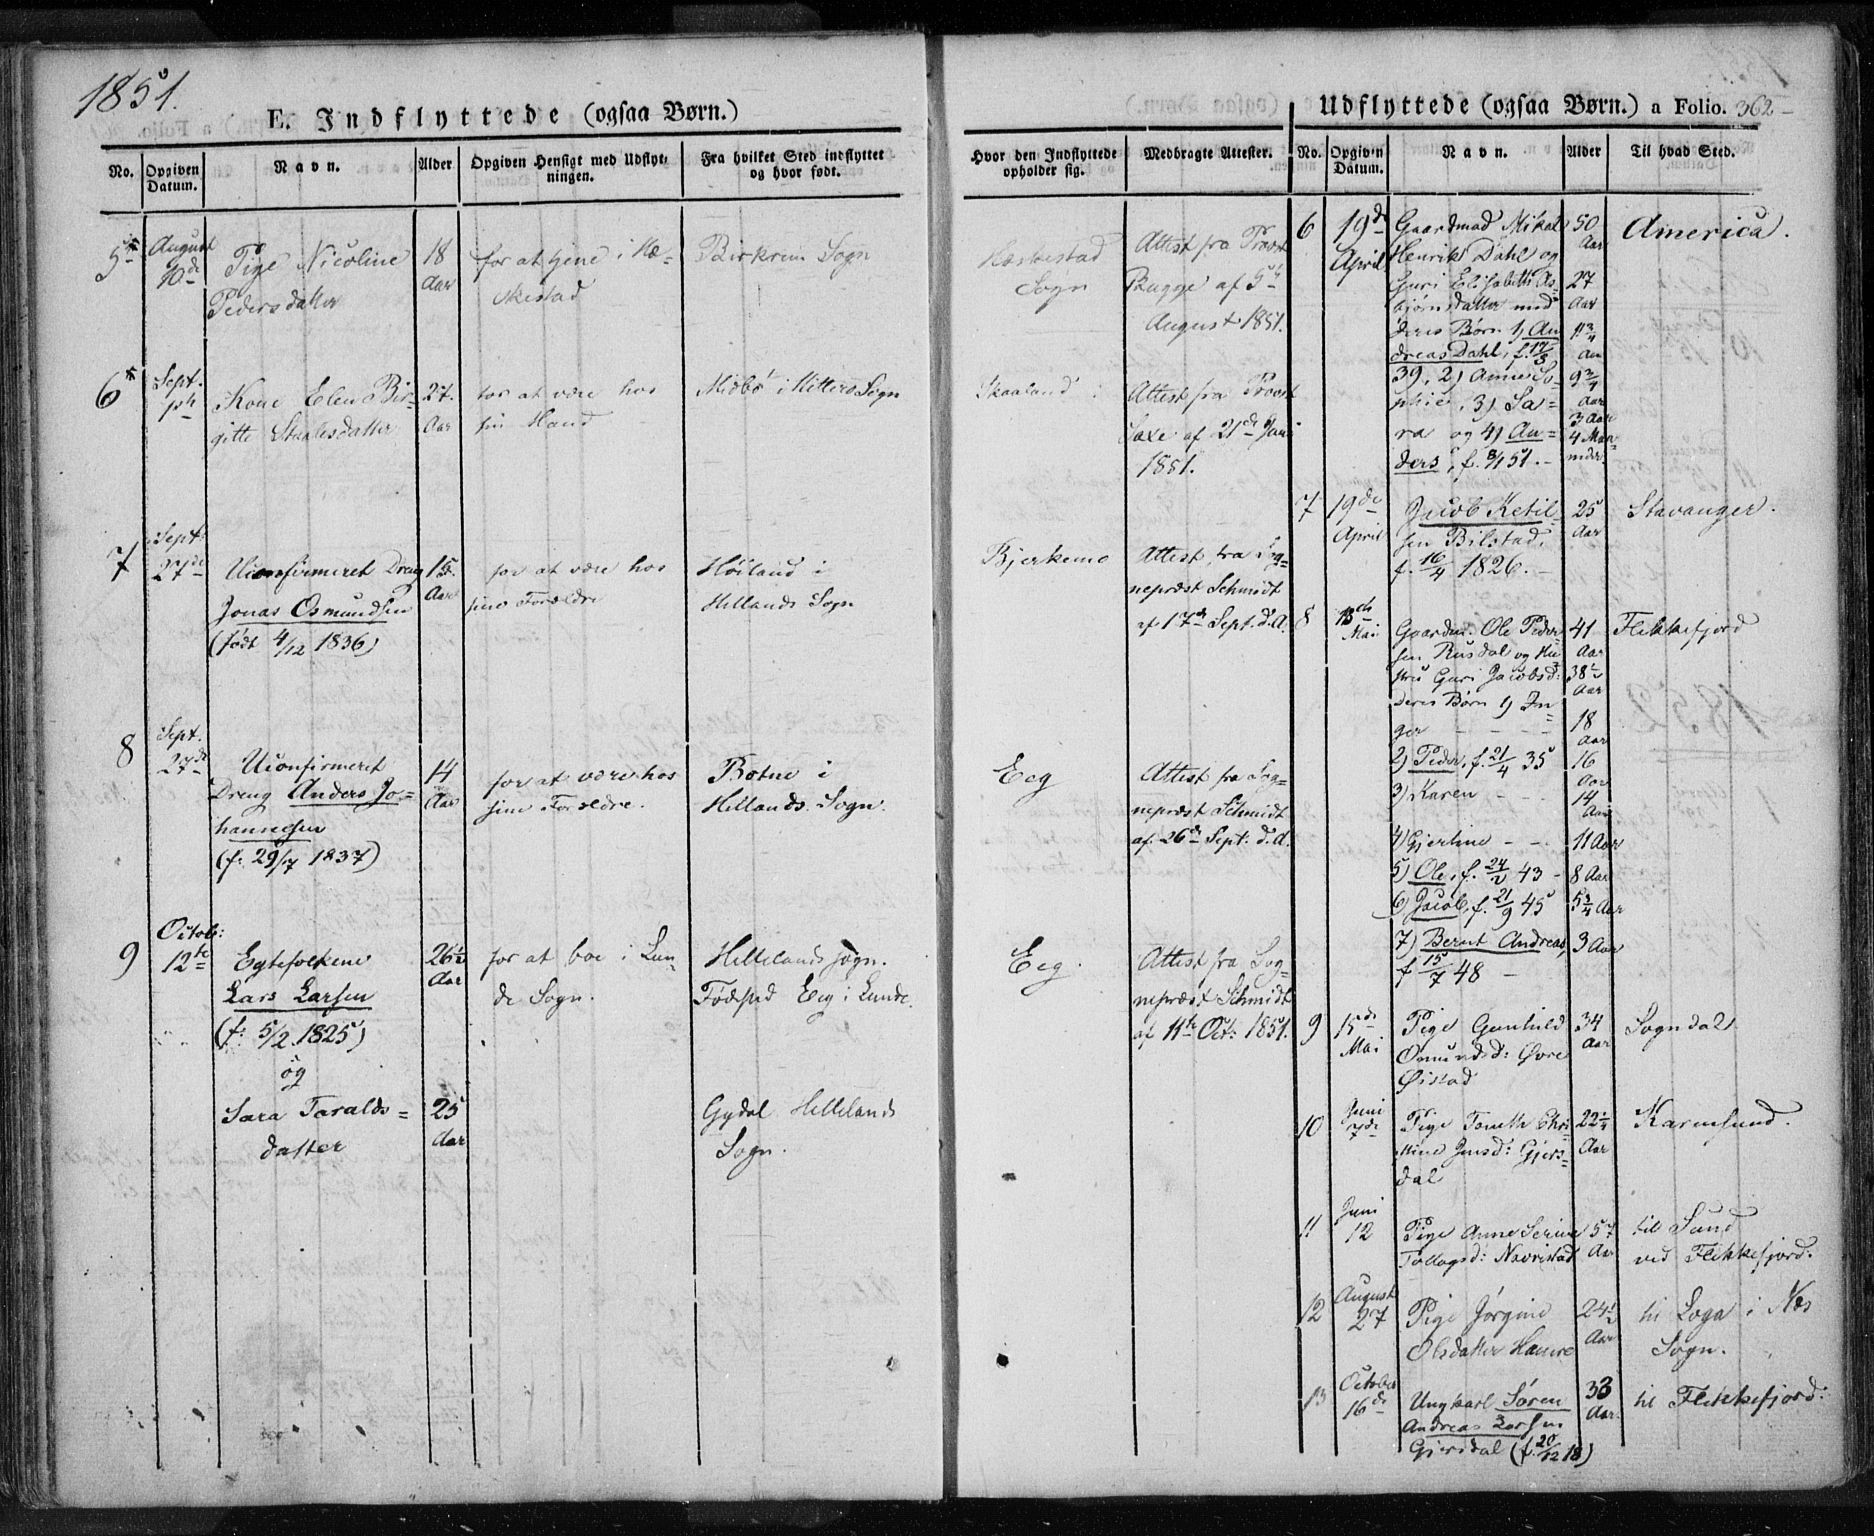 1851.
E. Indflyttede (ogsaa Børn.)
No.
Opgiven Datum.
Navn.
Alder
Opgiven Hensigt med Udflyt-
ningen.
Fra hvilket Sted indflyttet
og hvor født.
5te
August
10de
Pige Nicoline
Pedersdatter
18
Aar
for at tjene i Hæ-
skestad
Birkrem Sogn
6te
Sept.
Kone Elen Bir-
gitte Staalesdatter
27.
Aar
for at være hos
sin Mand
Midbø i Hitterø Sogn
7
Sept.
27de
Uconfirmeret Dreng
Jonas Osmundsen
(født 4/12 1836)
15.
Aar
for at være hos
sine Forældre
Høiland i
Hellands Sogn
8
Sept.
27de
Uconfirmeret
Dreng Anders Jo=
hannesen
(f. 29/7 1837)
14
Aar
for at være hos
sine Forældre.
Botne i
Hellands Sogn.
9
Octob:
12te
Egtefolkene
Lars Larsen
(f: 5/2 1825)
og
26½
Aar
for at boe i Lun-
de Sogn.
Hellelands sogn.
Fødested Eeg i Lunde.
Sara Taralds=
datter
25
Aar
Gydal Hellelands
Sogn.
Udflyttede (ogsaa Børn.) a Folio. 362
Hvor den Indflyttede
opholder sig.
Medbragte Attester.
No.
Opgiven
Datum.
Navn.
Alder
Til hvad Sted.
Hæskestad
Sogn
Attest fra Provst
Bugge af 5te
August 1851.
Skaaland
Attest fra Provst
Saxe af 21de Jan:
1851.
Bjerkemo
Attest fra Sog=
nepræst Schmidt
af 17de Sept. d.A.
Eeg
Attest fra Sog=
nepræst Schmidt
af 26de Sept. d.A.
Eeg.
Attest fra Sog=
nepræst Schmidt
af 11te Oct: 1851.
6
19de
April
Gaardmad Mikal
Henriks Dahl og
Guri Elisabeth As-
bjørnsdatter med
deres Børn 1) An
dreas Dahl, f. 17/3
39, 2) Anne So-
phie, 3) Sa=
ra og 4) An=
ders, f. 8/1 51.
50
Aar
27
Aar
11¾
Aar
9¾
Aar
3 Aar
4 Maa
neder.
America.
7
19de
April
Jacob Ketil-
sen Bilstad,
f. 16/4 1826.
25
Aar
Stavanger.
8
Mai
Gaardm. Ole Peder-
sen Rusdal og Hu-
stru Guri Jacobsd:
deres Børn 1) In=
ger
2) Peder, f. 21/4 35
3) Karen
4) Gjertine
5) Ole, f. 24/2 43
6) Jacob, f. 21/9 45
7) Bernt Andreas,
f 15/7 48
41
Aar
38½
Aar
18
Aar
16
Aar
14
Aar
11 Aar
8 Aar
5¾ Aar
3 Aar
Flekkefjord
9
15de
Mai
Pige Gunhild
Omundsd: Øvre
Øistad
34
Aar
Sogndal
10
Juni
7de
Pige Tomth. Chri-
stine Jensd: Gjers=
dal
22¼
Aar
Karmsund.
11
Juni
12
Pige Anne Serine
Tollagsd: Navrestad
Aar
til Sund
ved Flekkefjord:
12
August
27
Pige Jørgine
Olsdatter Hamre
24½
Aar
til Loga i Næs
Sogn.
13
October
16de
Ungkarl Søren
Andreas Larsen
Gjersdal (f. 20/12 18)
33
Aar.
til Flekkefjord: